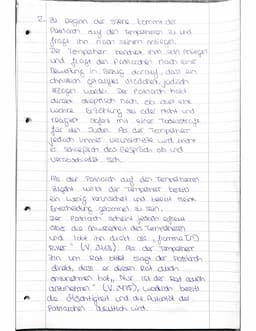 2. Zu Beginn der Szene kommt der
Patriarch auf den Tempelherrn zu und
fragt ihn nach seinem Anliegen.
Der Tempelherr berichtet ihm sein Anliegen
und fragt den Patriarchen nach einer
Bewertung in Bezug darauf, dass ein
christlich getauftes Mädchen, jüdisch
erzogen wurde. Der Patriarch hakt
direkt skeptisch nach, ob dies eine
wahre Erzählung sei oder nicht und
reagiert sofort mit einer Todesstrafe
für den Juden. Als der Tempelherr
jedoch immer verunsicherter wird, bricht
er schließlich das Gespräch ab und
verabschiedet sich.
Als der Patriarch auf den Tempelherrn
zugeht wirkt der Tempelherr bereits
ein wenig verunsichert und bereut seine
Entscheidung gekommen zu sein.
Der Patriarch scheint jedoch erfreut
über die Anwesenheit des Tempelherrn
und lobt ihn direkt als „fromme[r]
Ritter" (V. 2463). Als der Tempelherr
ihn um Rat bittet sagt der Patriarch
direkt, dass er diesen Rat auch
annehmen soll, „Nur ist der Rat auch
anzunehmen" (V. 2475), wodurch bereits
die Mächtigkeit und die Autorität des
Patriarchen deutlich wird.